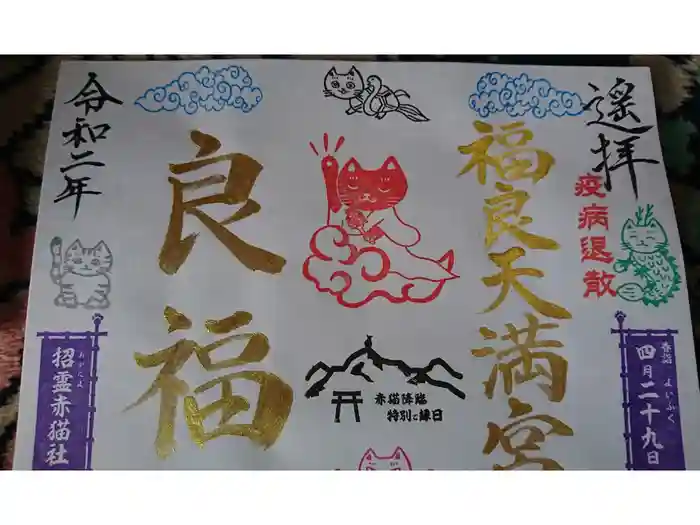 遥拝
疫病退散
福良天満宮
良福
令和二年
赤猫降臨
特別ご縁日
春詣
よいふく
四月二十九日
招霊赤猫社